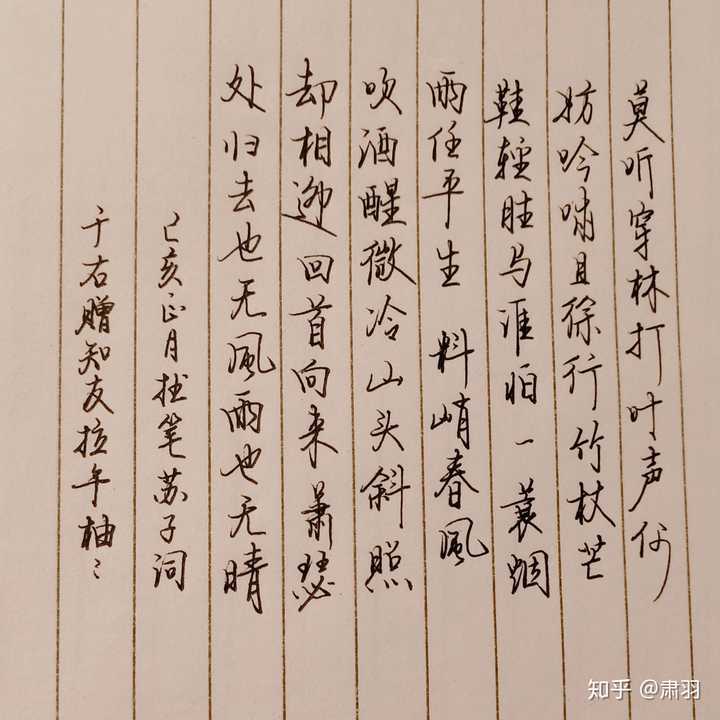 莫听穿林打叶声何
妨吟啸且徐行竹杖芒
鞋轻胜马谁怕一蓑烟
雨任平生 料峭春風
吹酒醒微冷山头斜照
却相迎 回首向来萧瑟
处归去也无風雨也无晴
己亥正月拙笔苏子词
于右赠知友拉午柚〻
知乎 @肃羽